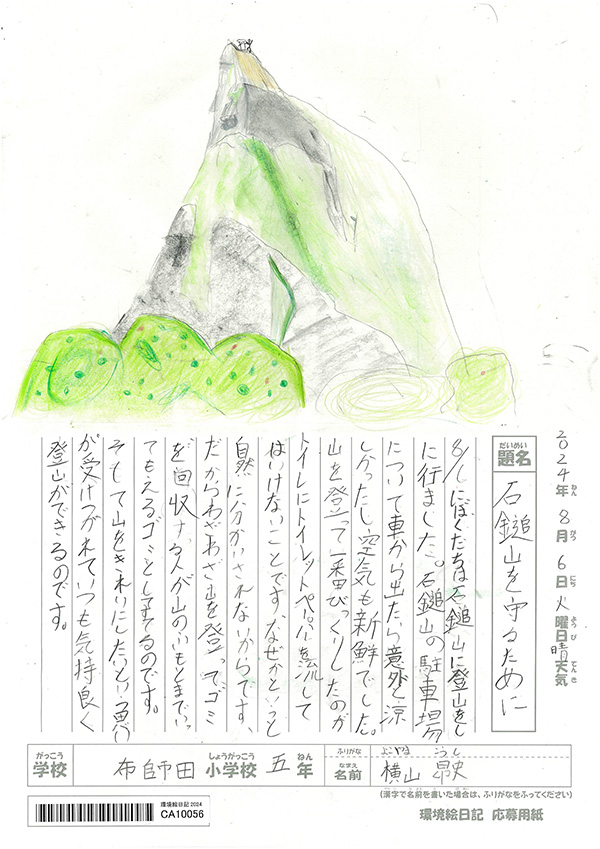 2024年 8月 6日 火曜日 晴 天気
ねん がつ にち ようび てんき
だいめい
題名
石鎚山を守るために
8/1にぼくたちは石鎚山に登山をし
に行きました。石鎚山の駐車場
について車から出たら意外と涼
しかったし、空気も新鮮でした。
山を登って一番びっくりしたのが
トイレにトイレットペーパーを流して
はいけないことです。なぜかというと
自然に分かいされないからです。
だからわざわざ山を登ってゴミ
を回収する人が山のふもとまでいっ
てもえるゴミとしてすてるのです。
そして山をきれいにしたいという
が受けつがれていつも気持良く
登山ができるのです。
がっこう しょうがっこう ねん
学校 布師田 小学校 五 年
ふりがな よこやま
なまえ
名前 横山
(漢字で名前を書いた場合は、ふりがなをふってください)
環境絵日記 応募用紙
環境絵日記 2024
CA10056